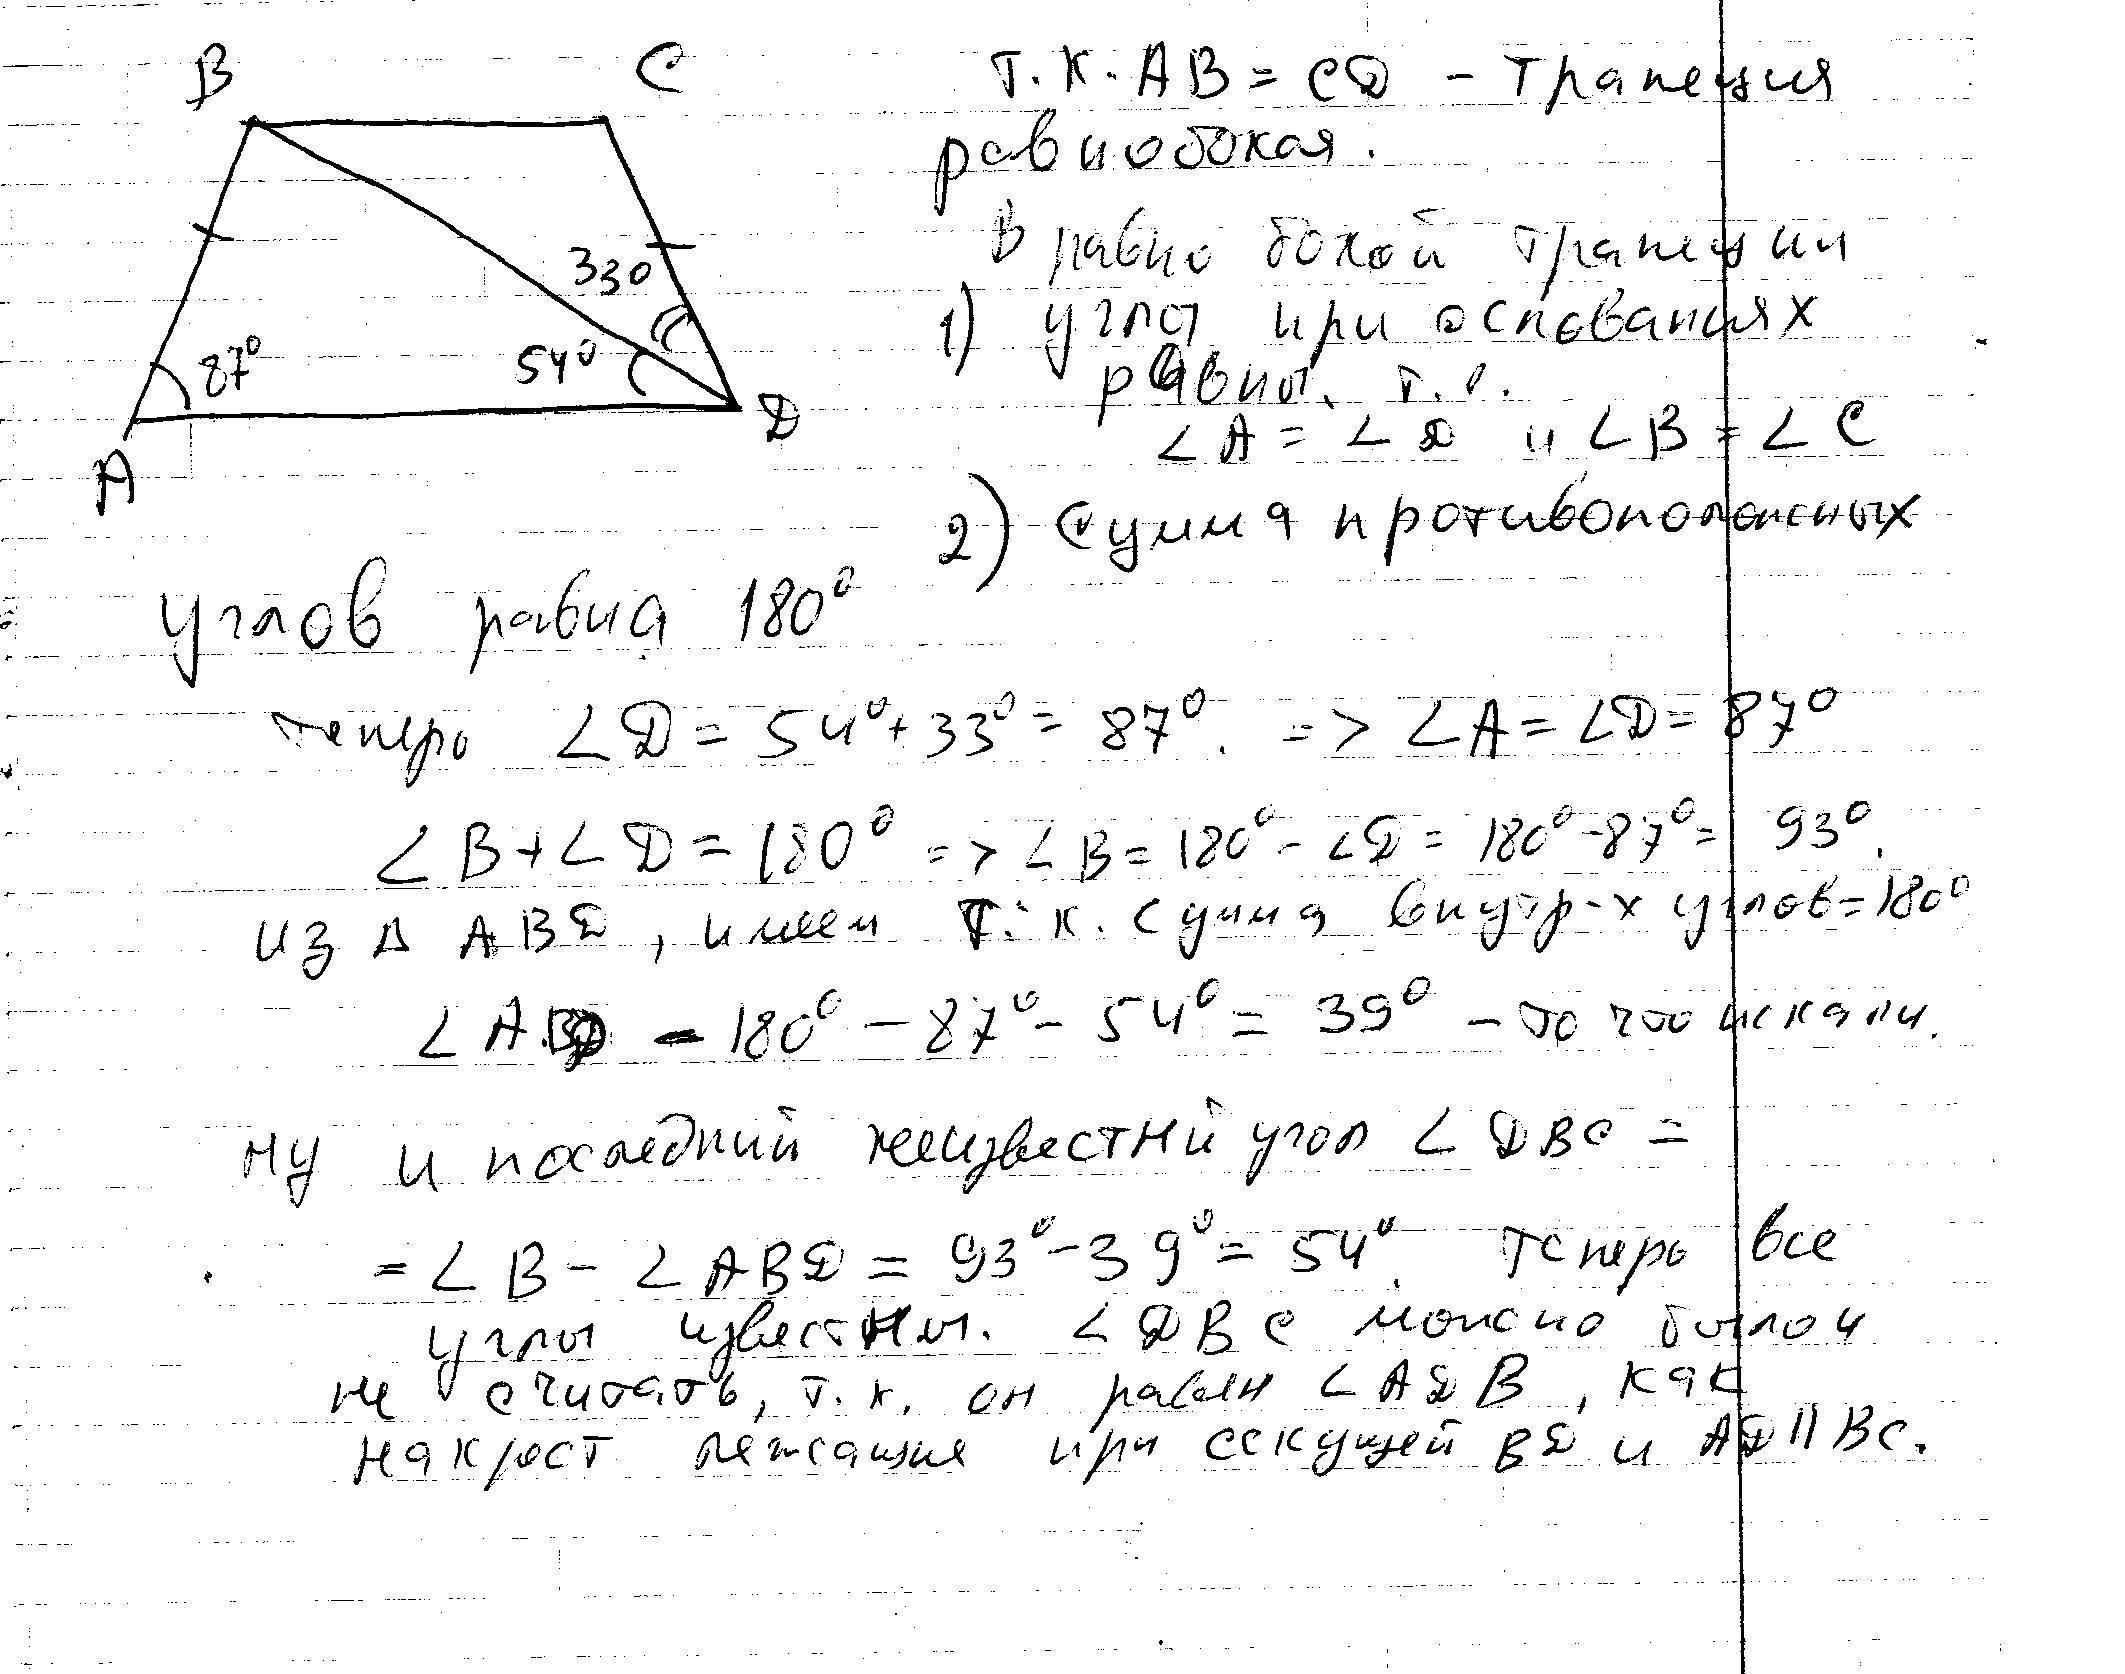 B C
33°
87° 54°
A D
Т.К. AB = CD – трапеция
равнобокая.
В равнобокой трапеции
1) угла при основаниях
равны, т.е.
∠A = ∠D и ∠B = ∠C
2) Сумма противоположных
углов равна 180°
теперь ∠D = 54° + 33° = 87°. => ∠A = ∠D = 87°
∠B + ∠D = 180° => ∠B = 180° - ∠D = 180° - 87° = 93°.
из Δ ABD, имеем т.к. сумма внутр-х углов = 180°
∠ABD = 180° - 87° - 54° = 39° – то что искали.
ну и последний неизвестний угол ∠DBC =
= ∠B - ∠ABD = 93° - 39° = 54°. Теперь все
углы известны. ∠DBC можно было и
не считать, т.к. он равен ∠ADB, как
накрест лежащие при секущей BD и AD || BC.